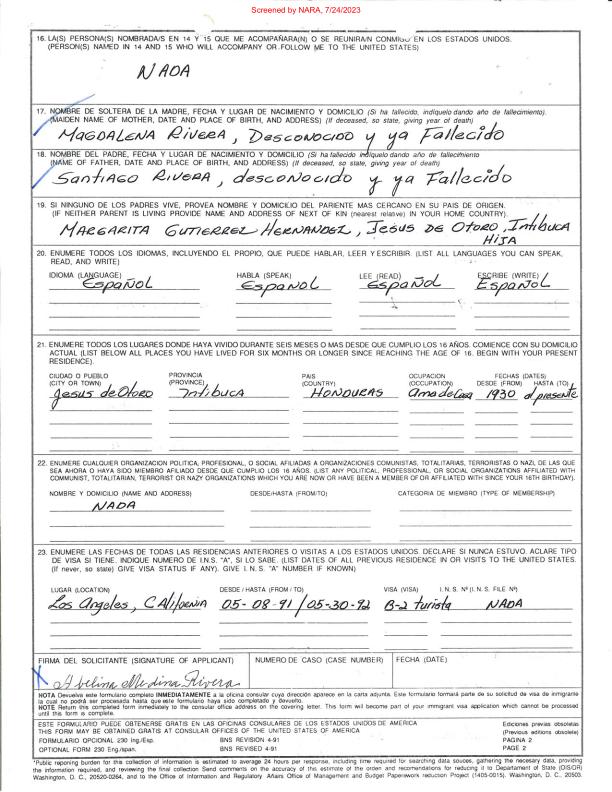 Screened by NARA, 7/24/2023
16. LA(S) PERSONA(S) NOMBRADA/S EN 14 Y 15 QUE ME ACOMPAÑARA(N) O SE REUNIRA/N CONMIGO EN LOS ESTADOS UNIDOS.
(PERSON(S) NAMED IN 14 AND 15 WHO WILL ACCOMPANY OR FOLLOW ME TO THE UNITED STATES)
NADA
17. NOMBRE DE SOLTERA DE LA MADRE, FECHA Y LUGAR DE NACIMIENTO Y DOMICILIO (Si ha fallecido, indíquelo dando año de fallecimiento).
(MAIDEN NAME OF MOTHER, DATE AND PLACE OF BIRTH, AND ADDRESS) (If deceased, so state, giving year of death)
MAGDALENA RIVERA, DESCONOCIDO y ya Fallecido
18. NOMBRE DEL PADRE, FECHA Y LUGAR DE NACIMIENTO Y DOMICILIO (Si ha fallecido indíquelo dando año de fallecimiento
(NAME OF FATHER, DATE AND PLACE OF BIRTH, AND ADDRESS) (If deceased, so state, giving year of death)
SANTIAGO RIVERA, desconocido y ya Fallecido
19. SI NINGUNO DE LOS PADRES VIVE, PROVEA NOMBRE Y DOMICILIO DEL PARIENTE MAS CERCANO EN SU PAIS DE ORIGEN.
(IF NEITHER PARENT IS LIVING PROVIDE NAME AND ADDRESS OF NEXT OF KIN (nearest relative) IN YOUR HOME COUNTRY).
MARGARITA GUTIERREZ HERNANDEZ, JESUS DE OTORO, INTIBUCA
HIJA
20. ENUMERE TODOS LOS IDIOMAS, INCLUYENDO EL PROPIO, QUE PUEDE HABLAR, LEER Y ESCRIBIR. (LIST ALL LANGUAGES YOU CAN SPEAK,
READ, AND WRITE)
IDIOMA (LANGUAGE) HABLA (SPEAK) LEE (READ) ESCRIBE (WRITE)
ESPAÑOL ESPAÑOL ESPAÑOL ESPAÑOL
21. ENUMERE TODOS LOS LUGARES DONDE HAYA VIVIDO DURANTE SEIS MESES O MAS DESDE QUE CUMPLIO LOS 16 AÑOS. COMIENCE CON SU DOMICILIO
ACTUAL (LIST BELOW ALL PLACES YOU HAVE LIVED FOR SIX MONTHS OR LONGER SINCE REACHING THE AGE OF 16. BEGIN WITH YOUR PRESENT
RESIDENCES)
CIUDAD O PUEBLO PROVINCIA PAIS OCUPACION FECHAS (DATES)
(CITY OR TOWN) (PROVINCE) (COUNTRY) (OCCUPATION) DESDE (FROM) HASTA (TO)
Jesus de Otoro Intibuca HONDURAS Ama de Casa 1930 al presente
22. ENUMERE CUALQUIER ORGANIZACION POLITICA, PROFESIONAL, O SOCIAL AFILIADAS A ORGANIZACIONES COMUNISTAS, TOTALITARIAS, TERRORISTAS O NAZI, DE LAS QUE
SEA AHORA O HAYA SIDO MIEMBRO AFILIADO DESDE QUE CUMPLIO LOS 16 AÑOS. (LIST ANY POLITICAL, PROFESSIONAL, OR SOCIAL ORGANIZATIONS AFFILIATED WITH
COMMUNIST, TOTALITARIAN, TERRORIST OR NAZY ORGANIZATIONS WHICH YOU ARE NOW OR HAVE BEEN A MEMBER OF OR AFFILIATED WITH SINCE YOUR 16TH BIRTHDAY).
NOMBRE Y DOMICILIO (NAME AND ADDRESS) DESDE/HASTA (FROM/TO) CATEGORIA DE MIEMBRO (TYPE OF MEMBERSHIP)
NADA
23. ENUMERE LAS FECHAS DE TODAS LAS RESIDENCIAS ANTERIORES O VISITAS A LOS ESTADOS UNIDOS. DECLARE SI NUNCA ESTUVO. ACLARE TIPO
DE VISA SI TIENE. INDIQUE NUMERO DE I.N.S. "A", SI LO SABE. (LIST DATES OF ALL PREVIOUS RESIDENCE IN OR VISITS TO THE UNITED STATES.
(If never, so state) GIVE VISA STATUS IF ANY). GIVE I.N.S. "A" NUMBER IF KNOWN)
LUGAR (LOCATION) DESDE / HASTA (FROM / TO) VISA (VISA) I.N.S. Nº (I.N.S. FILE Nº)
Los Angeles, CALIFORNIA 05-08-91 / 05-30-92 B-2 turista NADA
FIRMA DEL SOLICITANTE (SIGNATURE OF APPLICANT) NUMERO DE CASO (CASE NUMBER) FECHA (DATE)
X Abelina Medina Rivera
NOTA Devuelve este formulario completo INMEDIATAMENTE a la oficina consular cuya dirección aparece en la carta adjunta. Este formulario formará parte de su solicitud de visa de inmigrante
la cual no podrá ser procesada hasta que este formulario haya sido completado y devuelto.
NOTE Return this completed form immediately to the consular office address on the covering letter. This form will become part of your immigrant visa application which cannot be processed
until this form is complete.
ESTE FORMULARIO PUEDE OBTENERSE GRATIS EN LAS OFICINAS CONSULARES DE LOS ESTADOS UNIDOS DE AMERICA Ediciones previas obsoletas
THIS FORM MAY BE OBTAINED GRATIS AT CONSULAR OFFICES OF THE UNITED STATES OF AMERICA (Previous editions obsolete)
FORMULARIO OPCIONAL 230 Ing./Esp. BNS REVISION 4-91 PAGINA 2
OPTIONAL FORM 230 Eng/span. BNS REVISED 4-91 PAGE 2
*Public reporting burden for this collection of information is estimated to average 24 hours per response, including time required for searching data souces, gathering the necesary data, providing
the information required, and reviewing the final collection Send comments on the accuracy of this estimate of the orden and recomendations for reducing it to Department of State (OIS/OR)
Washington, D. C., 20520-0264, and to the Office of Information and Regulatory Affairs Office of Management and Budget Paperwork reduction Project (1405-0015). Washington, D. C., 20503.